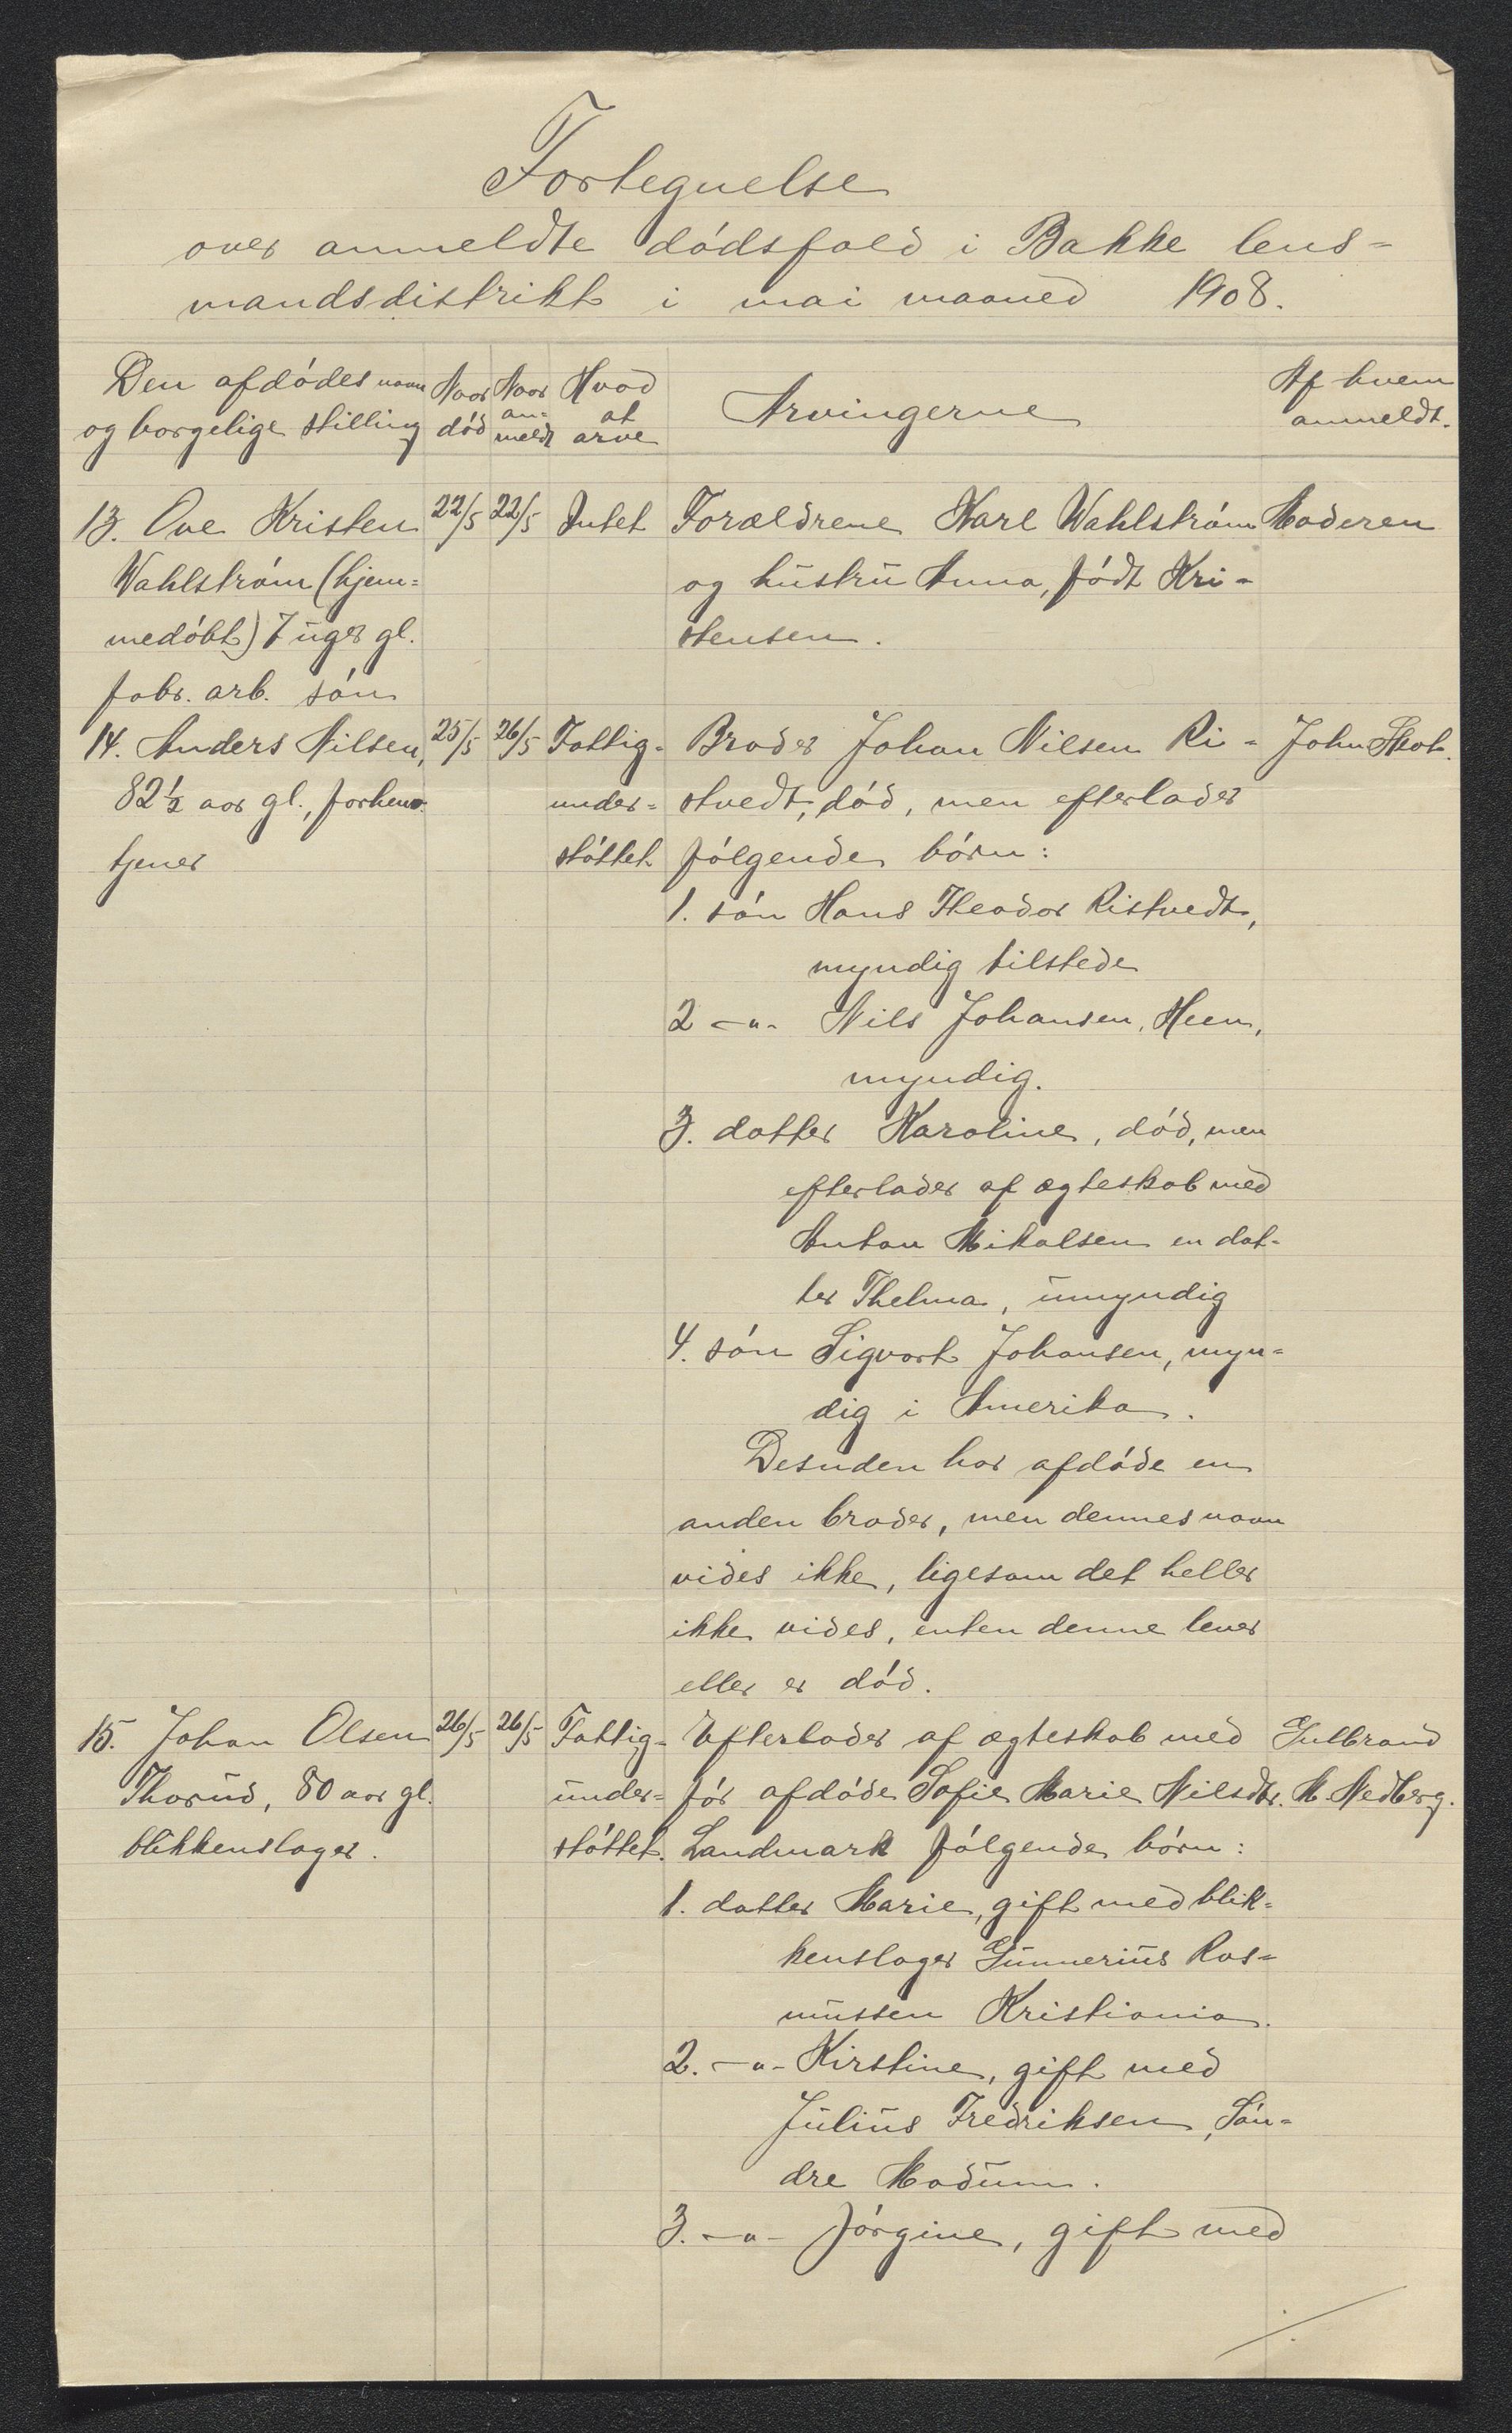 Fortegnelse
over anmeldte dødsfald i Bakke lens-
mandsdistrikt i mai maaned 1908.
Den afdødes navn
og borgelige stilling
Naar
død
Naar
an-
meldt
Hvad
at
arve
Arvingerne
Af hvem
anmeldt.
13. Ove Kristen
Wahlstrøm (hjem-
medøbt) 7 uger gl.
fabr. arb. søn
22/5
22/5
Intet
Forældrene Karl Wahlstrøm
og hustru Anna, født Kri-
stensen.
Moderen
14. Anders Nilsen,
82½ aar gl., forhenv.
tjener
25/5
26/5
Fattig-
under-
støttet
Broder Johan Nilsen Ri-
stvedt, død, men efterlader
følgende børn:
1. søn Hans Theodor Ristvedt,
myndig tilstede
2 -"- Nils Johansen, Heen,
myndig.
3. datter Karoline, død, men
efterlader af ægteskab med
Anton Mikalsen en dat-
ter Thelma, umyndig
4. søn Sigvart Johansen, myn-
dig i Amerika.
Desuden har afdøde en
anden broder, men dennes navn
vides ikke, ligesom det heller
ikke vides, enten denne lever
eller er død.
John
15. Johan Olsen
Thorud, 80 aar gl.
blikkenslager.
26/5
26/5
Fattig-
under-
støttet.
Efterlader af ægteskab med
før afdøde Sofie Marie Nilsdtr.
Landmark følgende børn:
1. datter Marie, gift med blik-
kenslager Gunnerius Ras-
mussen Kristiania.
2. -"- Kirstine, gift med
Julius Fredriksen, Søn-
dre Modum.
3. -"- Jørgine, gift med
Gulbrand
M. Nedberg.